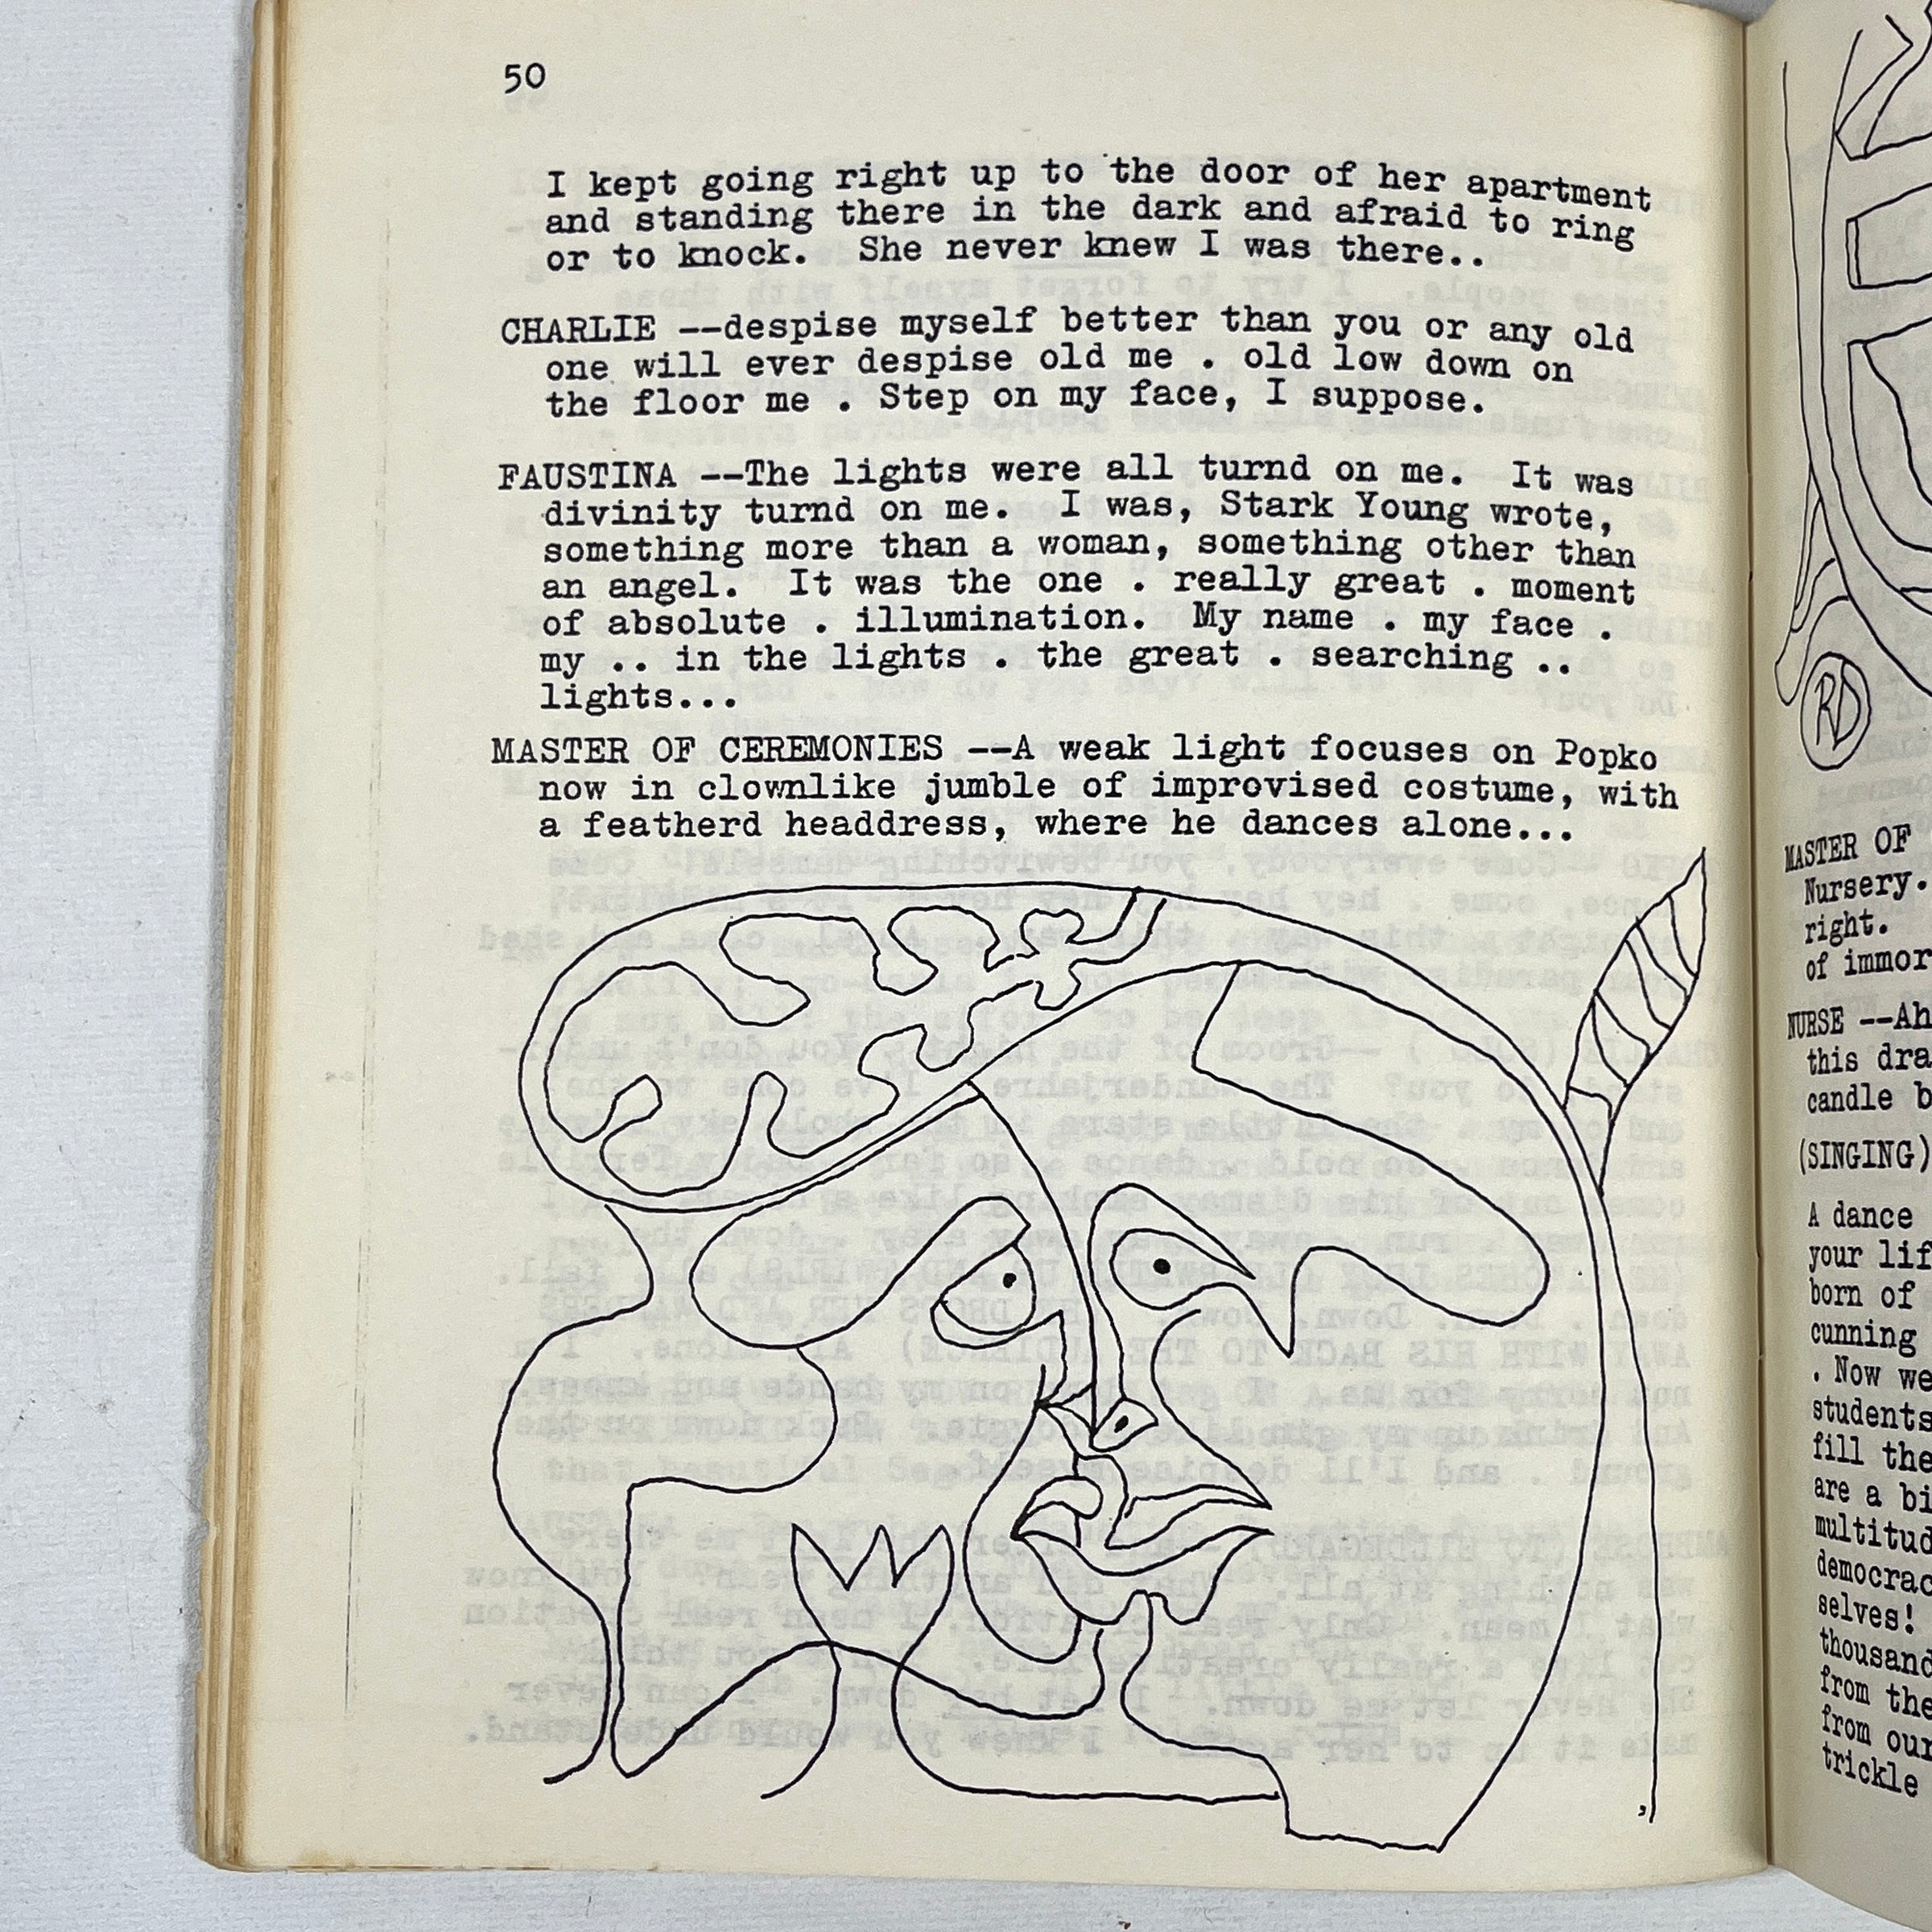 50
I kept going right up to the door of her apartment
and standing there in the dark and afraid to ring
or to knock.  She never knew I was there..
CHARLIE --despise myself better than you or any old
one will ever despise old me . old low down on
the floor me . Step on my face, I suppose.
FAUSTINA --The lights were all turnd on me.  It was
divinity turnd on me.  I was, Stark Young wrote,
something more than a woman, something other than
an angel.  It was the one . really great . moment
of absolute . illumination.  My name . my face .
my .. in the lights . the great . searching ..
lights...
MASTER OF CEREMONIES --A weak light focuses on Popko
now in clownlike jumble of improvised costume, with
a featherd headdress, where he dances alone...
RD
MASTER OF
Nursery.
right.
of immor
NURSE --Ah
this dra
candle b
(SINGING)
A dance
your lif
born of
cunning
. Now we
students
fill the
are a bi
multitud
democrac
selves!
thousand
from the
from our
trickle